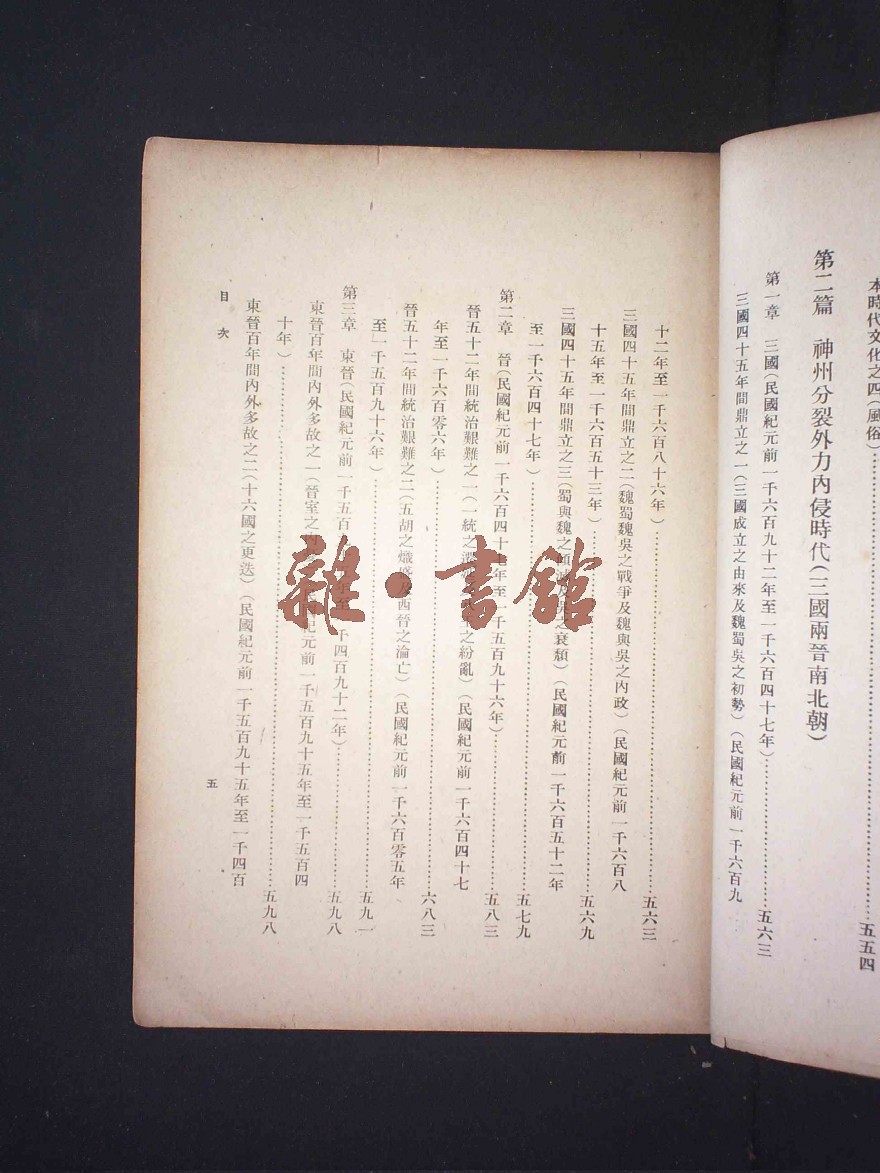 本時代文化之四(風俗)……五五四
第二篇 神州分裂外力內侵時代(三國兩晉南北朝)
第一章 三國(民國紀元前一千六百九十二年至一千六百四十七年)……五六三
三國四十五年間鼎立之一(三國成立之由來及魏蜀吳之初勢)(民國紀元前一千六百九
十二年至一千六百八十六年)……五六三
三國四十五年間鼎立之二(魏蜀魏吳之戰爭及魏與吳之內政)(民國紀元前一千六百八
十五年至一千六百五十三年)……五六九
三國四十五年間鼎立之三(蜀與魏之傾 之衰頹)(民國紀元前一千六百五十二年
至一千六百四十七年)……五七九
第二章 晉(民國紀元前一千六百四十七年至一千五百九十六年)……五八三
晉五十二年間統治艱難之一(一統之 之紛亂)(民國紀元前一千六百四十七
年至一千六百零六年)……六八三
晉五十二年間統治艱難之二(五胡之熾盛及西晉之淪亡)(民國紀元前一千六百零五年
至一千五百九十六年)……五九一
第三章 東晉(民國紀元前一千五百 年至一千四百九十二年)……五九八
東晉百年間內外多故之一(晉室之 紀元前一千五百九十五年至一千五百四
十年)……五九八
東晉百年間內外多故之二(十六國之更迭)(民國紀元前一千五百九十五年至一千四百
目次
五
雜·書館